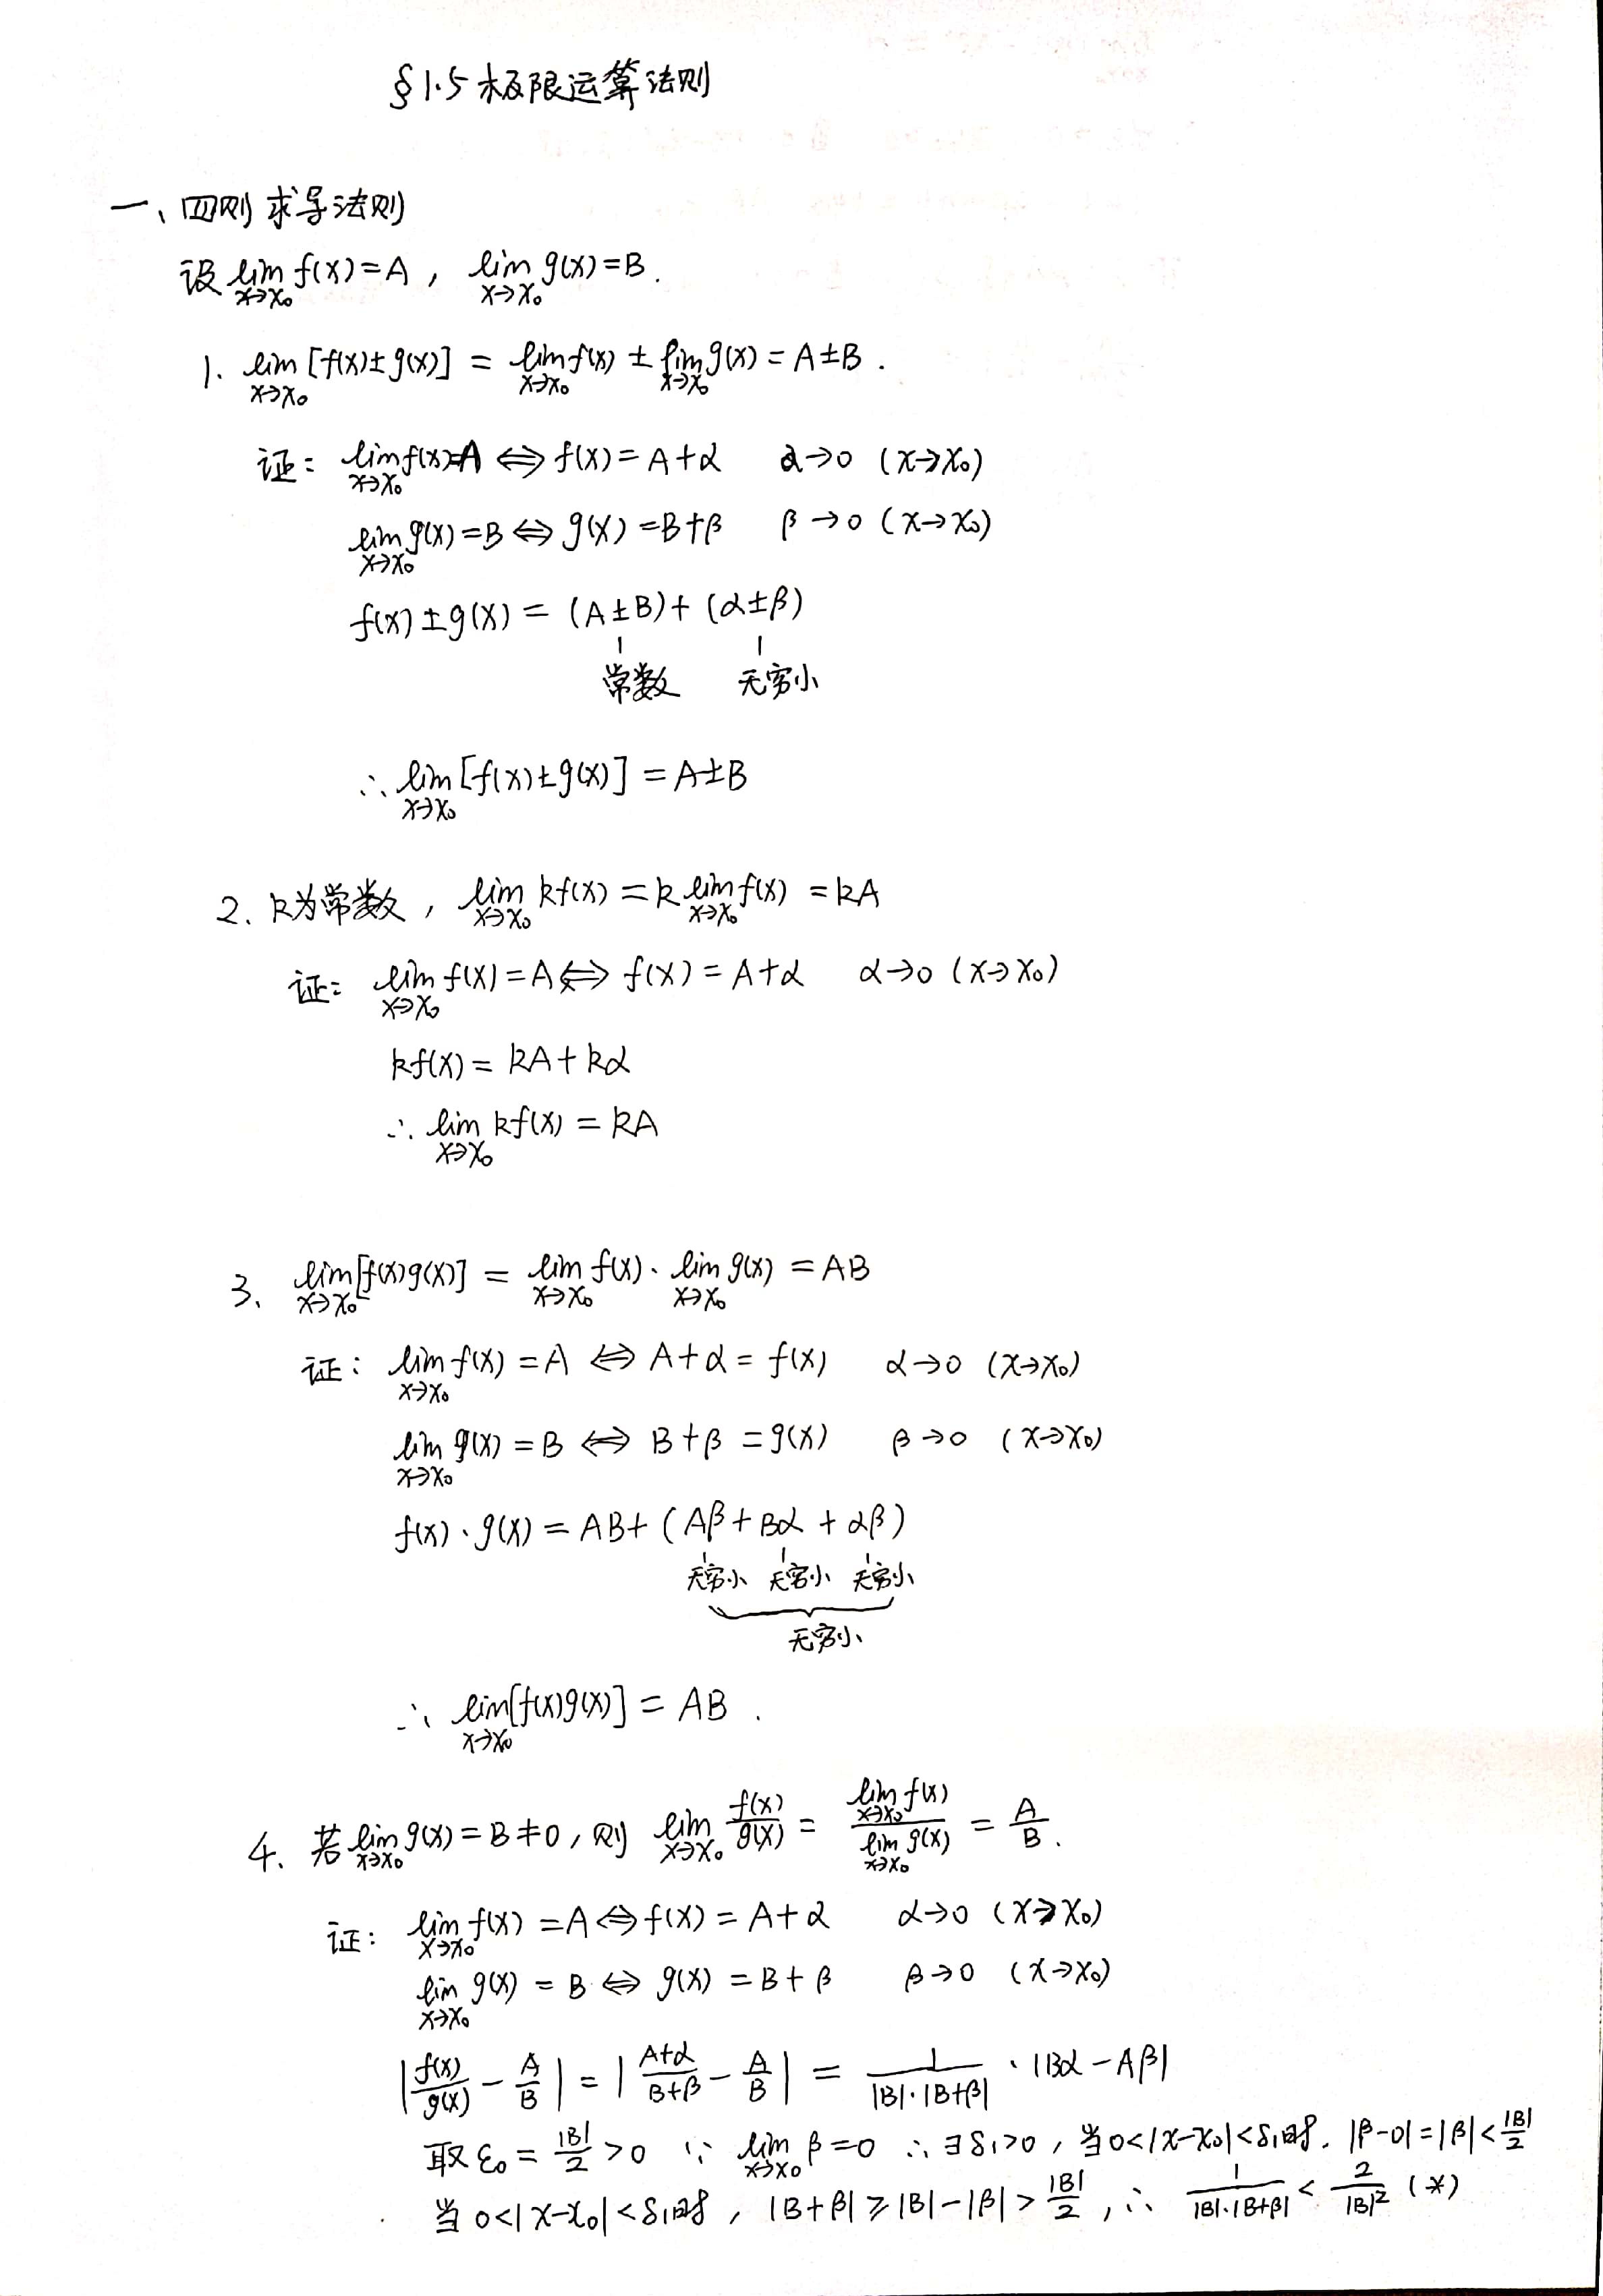 §1.5 极限运算法则
一、四则求导法则
设 lim_{x→x₀} f(x)=A, lim_{x→x₀} g(x)=B.
1. lim_{x→x₀} [f(x)±g(x)] = lim_{x→x₀} f(x) ± lim_{x→x₀} g(x) = A±B.
证: lim_{x→x₀} f(x)=A ⇔ f(x)=A+α α→0 (x→x₀)
lim_{x→x₀} g(x)=B ⇔ g(x)=B+β β→0 (x→x₀)
f(x)±g(x) = (A±B)+(α±β)
常数 无穷小
∴ lim_{x→x₀} [f(x)±g(x)] = A±B
2. k为常数, lim_{x→x₀} kf(x) = k lim_{x→x₀} f(x) = kA
证: lim_{x→x₀} f(x)=A ⇔ f(x)=A+α α→0 (x→x₀)
kf(x) = kA+kα
∴ lim_{x→x₀} kf(x) = kA
3、 lim_{x→x₀} [f(x)g(x)] = lim_{x→x₀} f(x)·lim_{x→x₀} g(x) = AB
证: lim_{x→x₀} f(x)=A ⇔ A+α=f(x) α→0 (x→x₀)
lim_{x→x₀} g(x)=B ⇔ B+β=g(x) β→0 (x→x₀)
f(x)·g(x) = AB+(Aβ+Bα+αβ)
无穷小 无穷小 无穷小
无穷小
∴ lim_{x→x₀} [f(x)g(x)] = AB.
4. 若 lim_{x→x₀} g(x)=B≠0, 则 lim_{x→x₀} f(x)/g(x) = lim_{x→x₀} f(x) / lim_{x→x₀} g(x) = A/B.
证: lim_{x→x₀} f(x)=A ⇔ f(x)=A+α α→0 (x→x₀)
lim_{x→x₀} g(x)=B ⇔ g(x)=B+β β→0 (x→x₀)
|f(x)/g(x) - A/B| = |(A+α)/(B+β) - A/B| = 1/(|B|·|B+β|) · |Bα-Aβ|
取 ε₀=|B|/2>0 ∵ lim_{x→x₀} β=0 ∴ ∃δ₁>0, 当0<|x-x₀|<δ₁时. |β-0|=|β|<|B|/2
当 0<|x-x₀|<δ₁时, |B+β|≥|B|-|β|>|B|/2, ∴ 1/(|B|·|B+β|) < 2/|B|² (*)